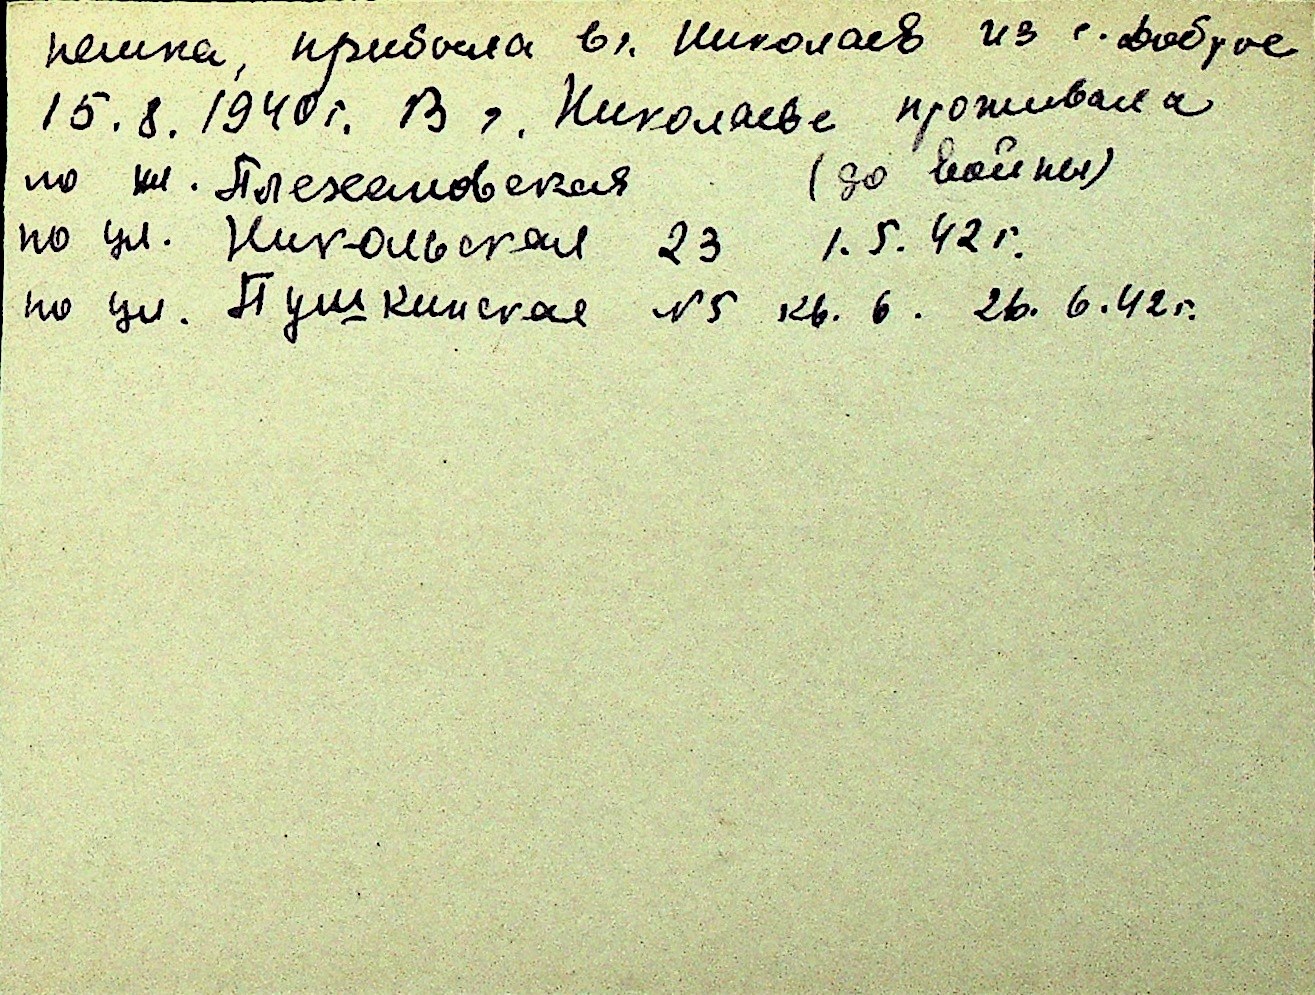 немка, прибыла в г. Николаев из с. Доброе
15.8.1940 г. В г. Николаеве проживала
по ул. Плехановская (до войны)
по ул. Никольская 23 1.5.42 г.
по ул. Пушкинская №5 кв. 6. 26.6.42 г.